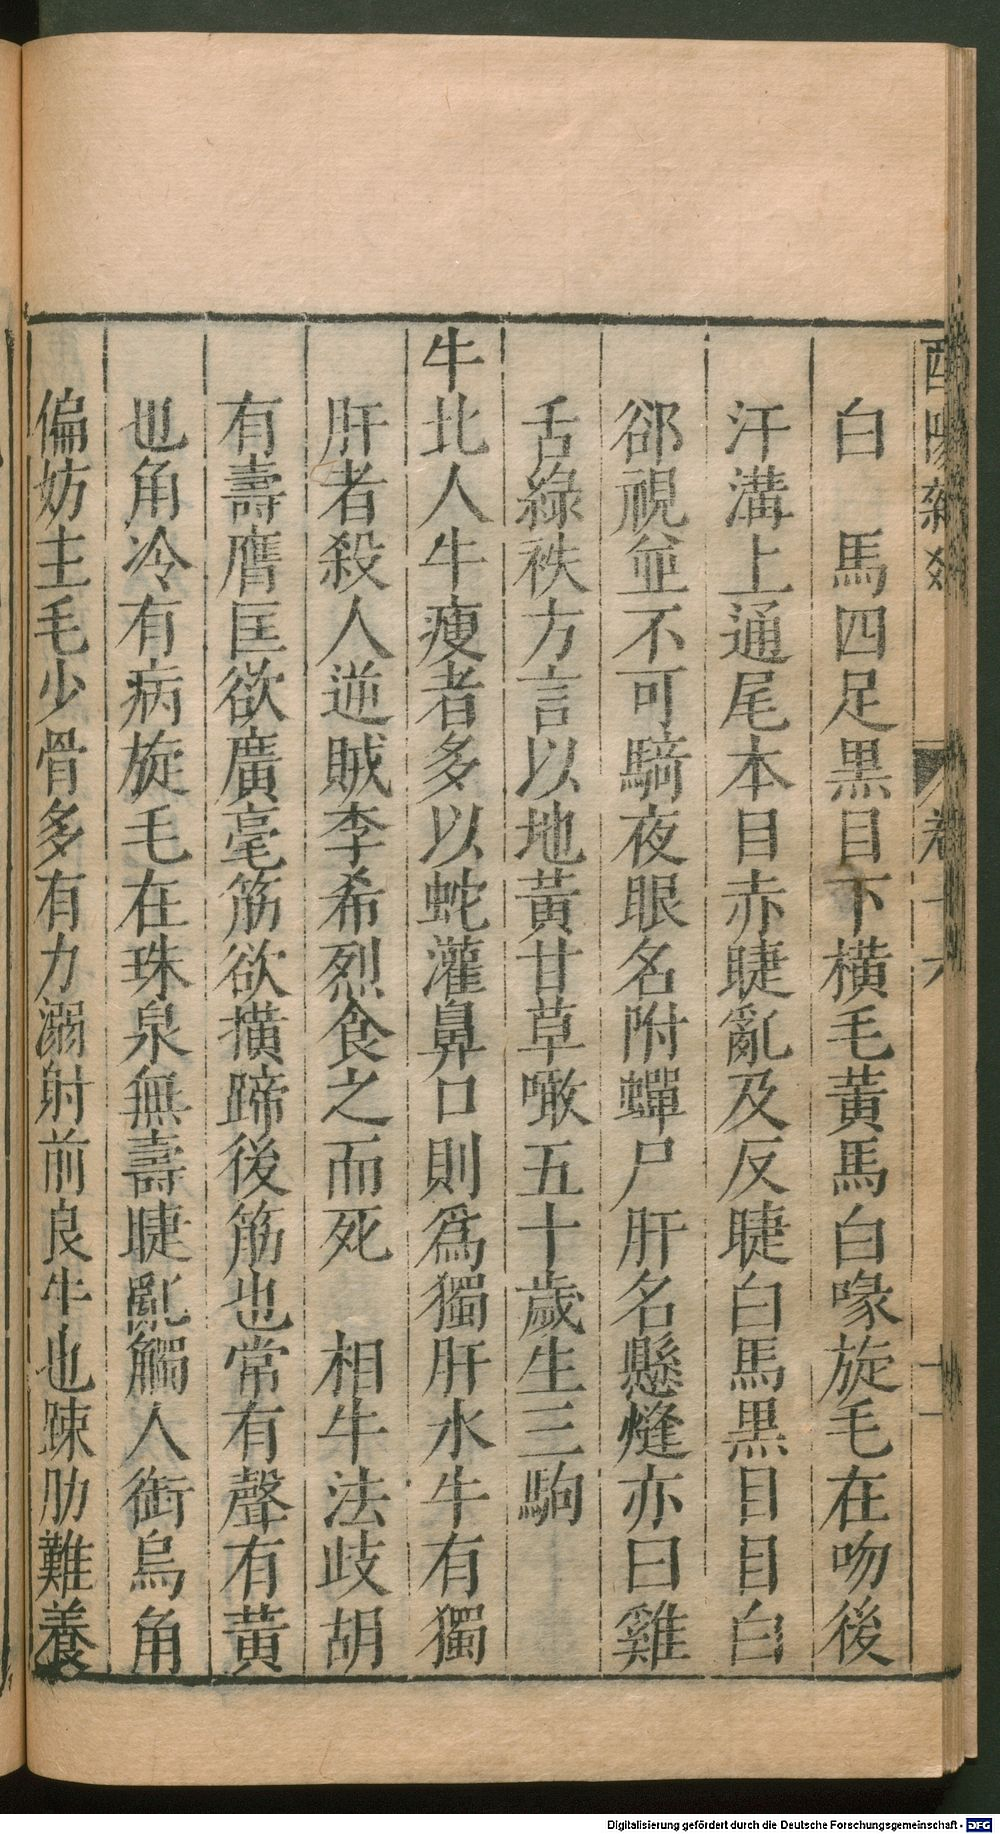 酉陽雜俎
卷十六
十一
白　馬四足黒目下横毛黃馬白喙旋毛在吻後
汗溝上通尾本目赤睫亂及反睫白馬黒目目白
郤視並不可騎夜眼名附蟬尸肝名懸㷡亦曰雞
舌綠袟方言以地黃甘草噉五十歲生三駒
牛北人牛瘦者多以蛇灌鼻口則爲獨肝水牛有獨
肝者殺人逆賊李希烈食之而死　相牛法歧胡
有壽膺匡欲廣毫筋欲撗蹄後筋也常有聲有黃
也角冷有病旋毛在珠泉無壽睫亂觸人銜烏角
偏妨主毛少骨多有力溺射前良牛也踈肋難養
Digitalisierung gefördert durch die Deutsche Forschungsgemeinschaft - DFG